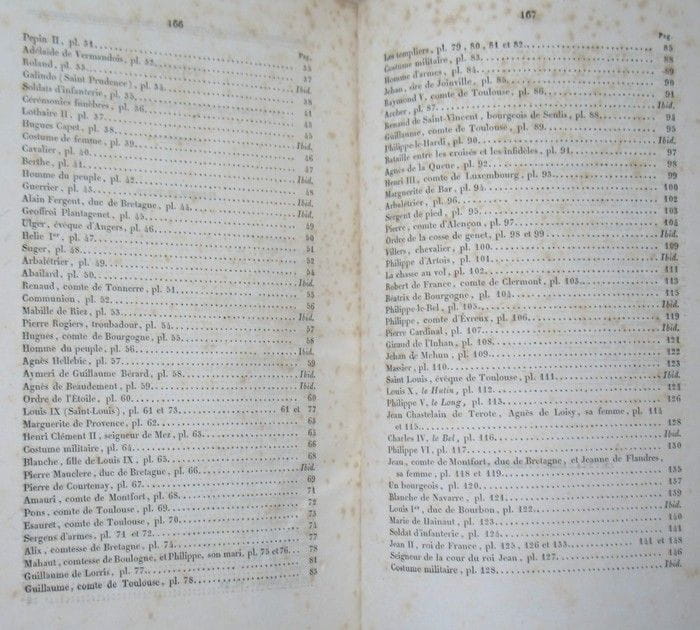 166
Pag.
Pepin II, pl. 31. 35
Adélaïde de Vermandois, pl. 32. 37
Roland, pl. 33. Ibid.
Galindo (Saint Prudence), pl. 34.
Soldats d'infanterie, pl. 35.
Cérémonies funèbres, pl. 36.
Lothaire II, pl. 37.
Hugues Capet, pl. 38.
Costume de femme, pl. 39. Ibid.
Cavalier, pl. 40. 46
Berthe, pl. 41. 47
Homme du peuple, pl. 42. Ibid.
Guerrier, pl. 43. 48
Alain Fergent, duc de Bretagne, pl. 44. Ibid.
Geoffroi Plantagenet, pl. 45. Ibid.
Ulger, évêque d'Angers, pl. 46. 49
Helie Ier, pl. 47. 50
Suger, pl. 48. 51
Arbalétrier, pl. 49. 52
Abailard, pl. 50. 54
Renaud, comte de Tonnerre, pl. 51. Ibid.
Communion, pl. 52. 55
Mabille de Riez, pl. 53. 56
Pierre Rogiers, troubadour, pl. 54. Ibid.
Hugues, comte de Bourgogne, pl. 55. 57
Homme du peuple, pl. 56. 58
Agnès Hellebic, pl. 57. 59
Aymeri de Guillaume Bérard, pl. 58. Ibid.
Agnès de Beaudement, pl. 59. Ibid.
Ordre de l'Etoile, pl. 60. 60
Louis IX (Saint-Louis), pl. 61 et 73. 61 et 77
Marguerite de Provence, pl. 62. 63
Henri Clément II, seigneur de Mez, pl. 63. 65
Costume militaire, pl. 64. 66
Blanche, fille de Louis IX, pl. 65. 68
Pierre Mauclerc, duc de Bretagne, pl. 66. Ibid.
Pierre de Courtenay, pl. 67. 69
Amauri, comte de Montfort, pl. 68. 71
Pons, comte de Toulouse, pl. 69. 72
Esauret, comte de Toulouse, pl. 70. 73
Sergens d'armes, pl. 71 et 72. 74
Alix, comtesse de Bretagne, pl. 74. 78
Mahaut, comtesse de Boulogne, et Philippe, son mari, pl. 75 et 76. 78
Guillaume de Lorris, pl. 77. 81
Guillaume, comte de Toulouse, pl. 78. 83
167
Pag.
Les templiers, pl. 79, 80, 81 et 82. 85
Costume militaire, pl. 83. 88
Homme d'armes, pl. 84. 89
Jehan, sire de Joinville, pl. 85. 90
Raymond V, comte de Toulouse, pl. 86. 91
Archer, pl. 87. Ibid.
Renaud de Saint-Vincent, bourgeois de Senlis, pl. 88. 94
Guillaume, comte de Toulouse, pl. 89. 95
Philippe-le-Hardi, pl. 90. Ibid.
Bataille entre les croisés et les infidèles, pl. 91. 97
Agnès de la Queue, pl. 92. 98
Henri III, comte de Luxembourg, pl. 93. 99
Marguerite de Bar, pl. 94. 100
Arbalétrier, pl. 96. 102
Sergent de pied, pl. 95. 103
Pierre, comte d'Alençon, pl. 97. 104
Ordre de la cosse de genet, pl. 98 et 99. Ibid.
Villers, chevalier, pl. 100. 109
Philippe d'Artois, pl. 101. Ibid.
La chasse au vol, pl. 102. 111
Robert de France, comte de Clermont, pl. 103. 113
Béatrix de Bourgogne, pl. 104. 115
Philippe-le-Bel, pl. 105. Ibid.
Philippe, comte d'Évreux, pl. 106. 119
Pierre Cardinal, pl. 107. Ibid.
Giraud de l'Inhan, pl. 108. 121
Jehan de Mehun, pl. 109. 122
Massier, pl. 110. 123
Saint Louis, évêque de Toulouse, pl. 111. Ibid.
Louis X, le Hutin, pl. 112. 124
Philippe V, le Long, pl. 113. 126
Jean Chastelain de Terote, Agnès de Loisy, sa femme, pl. 114
et 115. 128
Charles IV, le Bel, pl. 116. Ibid.
Philippe VI, pl. 117. 130
Jean, comte de Montfort, duc de Bretagne, et Jeanne de Flandres,
sa femme, pl. 118 et 119. 135
Un bourgeois, pl. 120. 137
Blanche de Navarre, pl. 121. 139
Louis Ier, duc de Bourbon, pl. 122. Ibid.
Marie de Hainaut, pl. 123. 140
Soldat d'infanterie, pl. 124. 141
Jean II, roi de France, pl. 125, 126 et 133. 141 et 158
Seigneur de la cour du roi Jean, pl. 127. 146
Costume militaire, pl. 128. Ibid.